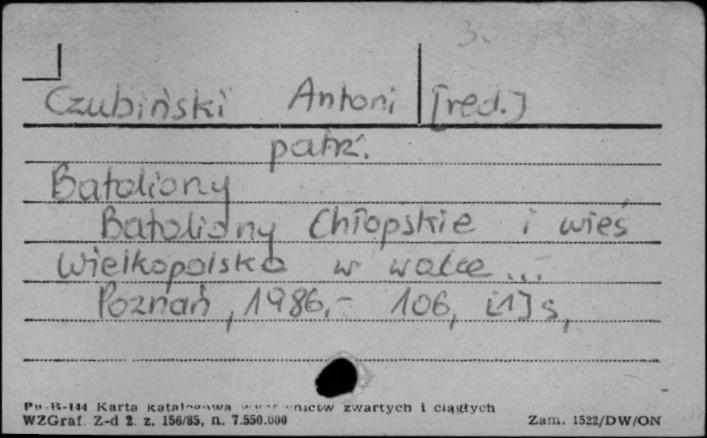 3.
Czubiński Antoni [red.]
patrz.
Bataliony
Bataliony Chłopskie i wieś
Wielkopolska w walce...
Poznań, 1986,- 106, [1] s,
Pu-B-144 Karta katalogowa wydawnictw zwartych i ciągłych
WZGraf. Z-d 2. z. 156/85, n. 7.550.000 Zam. 1522/DW/ON